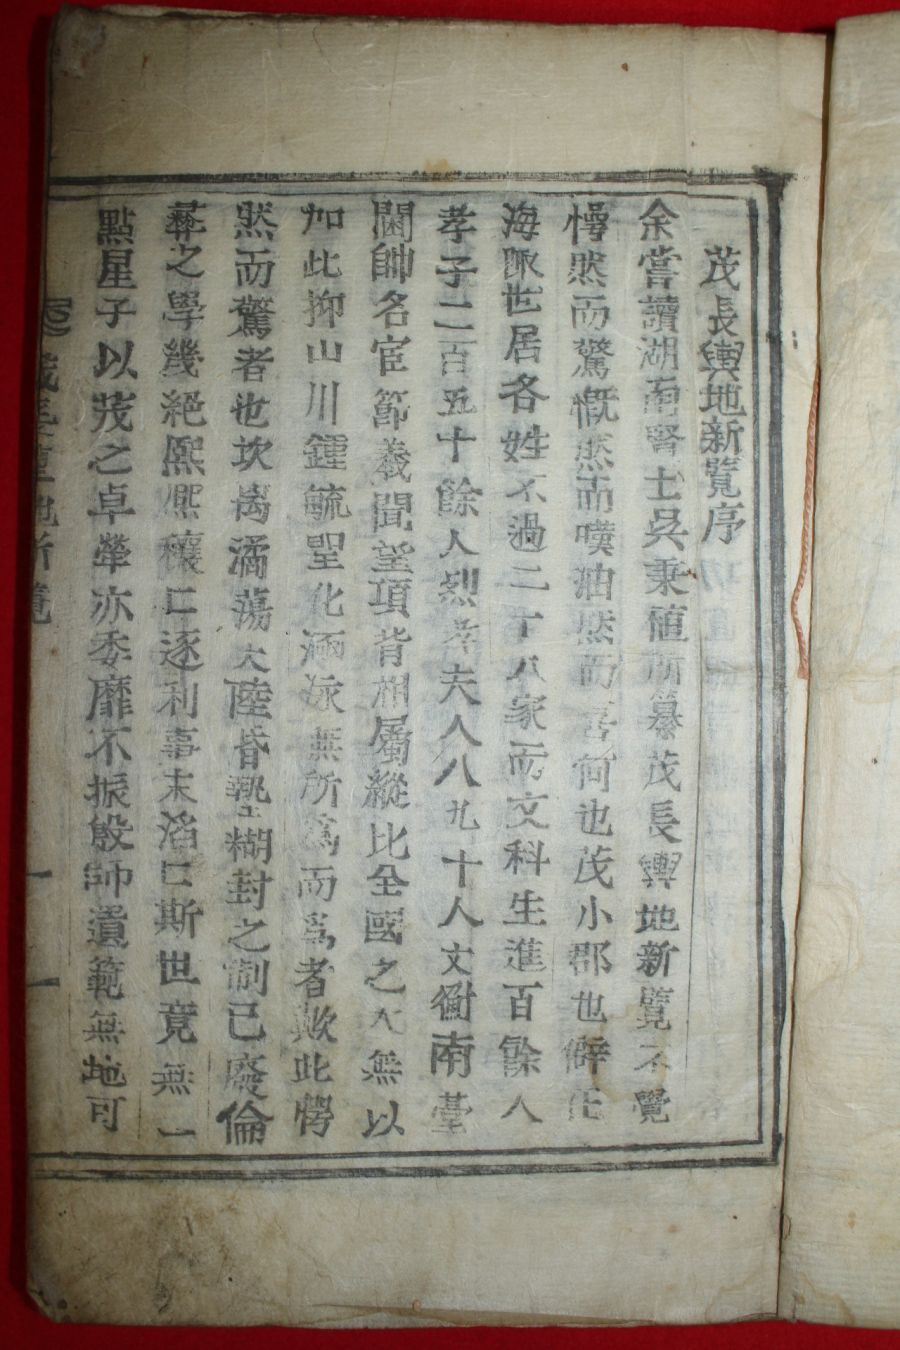 茂長輿地新覽序
余嘗讀湖南賢士吳秉植所纂茂長輿地新覽不覺
愕然而驚慨然而嘆油然而喜何也茂小郡也僻在
海陬世居各姓不過二十八家而文科生進百餘人
孝子二百五十餘人烈孝夫人八九十人文衡南臺
閫帥名宦節義聞望項背相屬縱比全國之大無以
加此抑山川鍾毓聖化涵泳無所爲而爲者歟此愕
然而驚者也坎離潏蕩大陸昏墊糊封之制已廢倫
彛之學幾絶熙熙穰穰逐利事末滔滔斯世竟無一
點星子以茂之卓犖亦委靡不振殷師遺範無地可